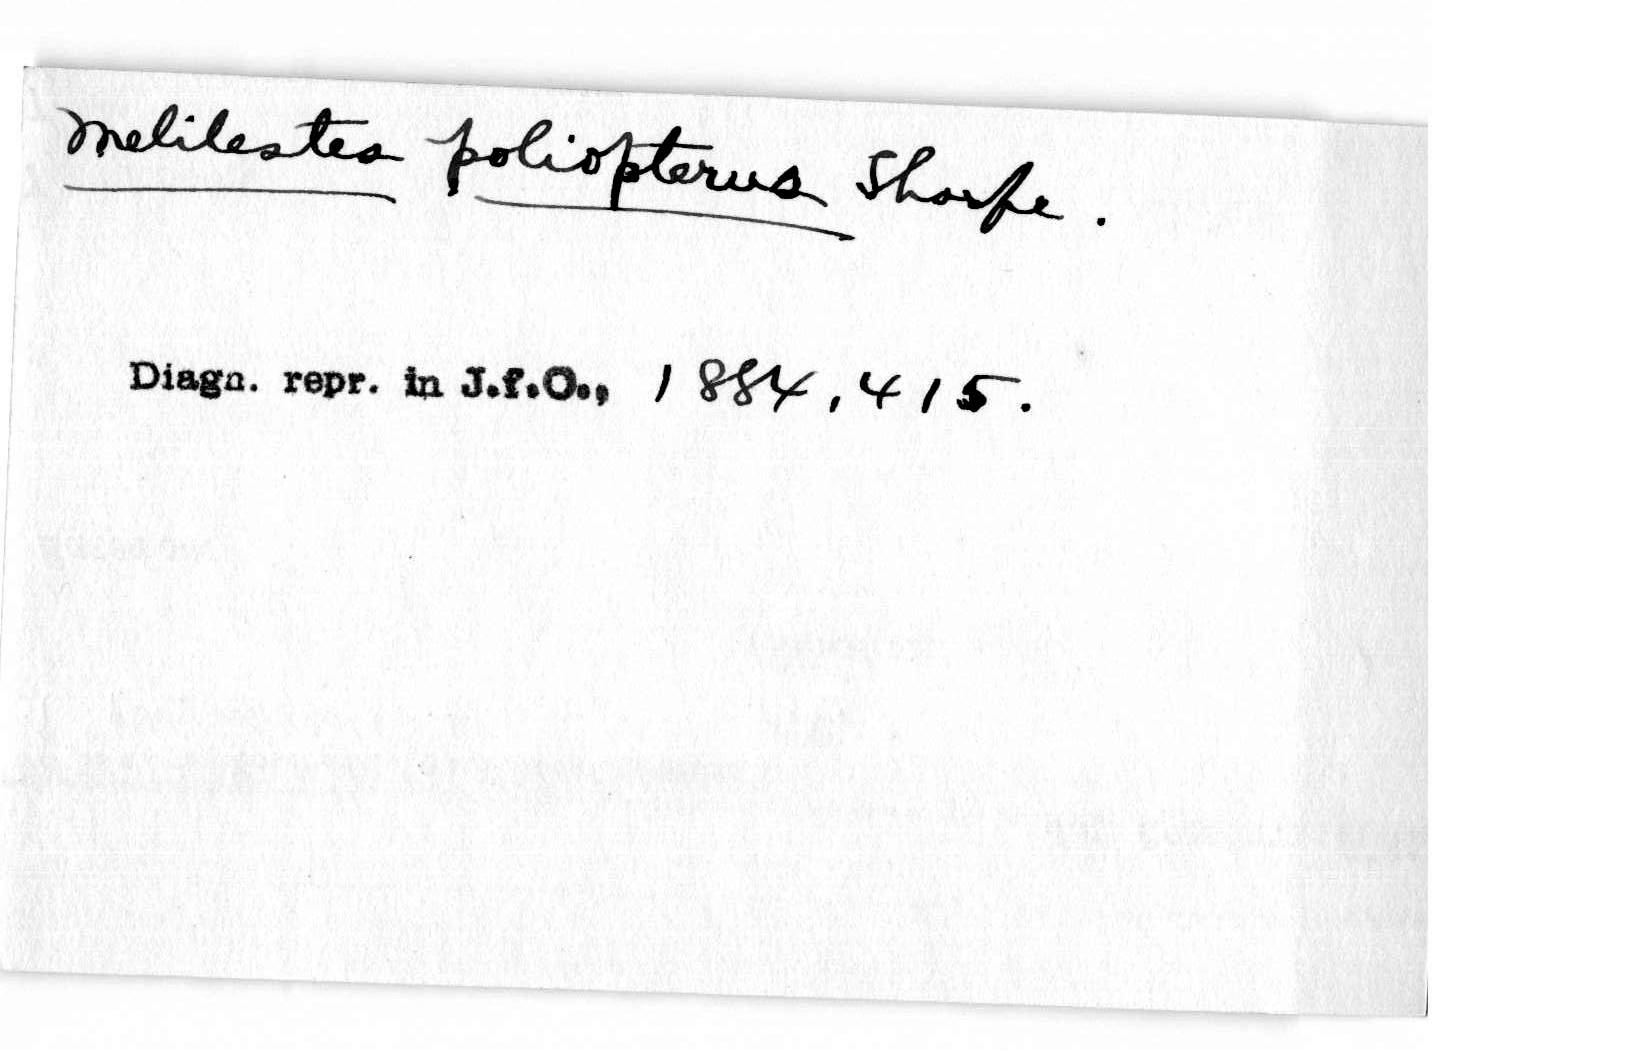 Melilestes poliopterus Sharpe.
Diagn. repr. in J.f.O., 1884, 415.